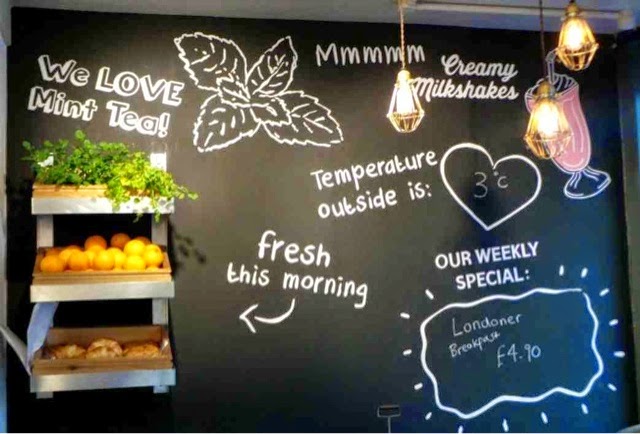 We LOVE
Mint Tea!
Mmmmmm
Creamy
Milkshakes
Temperature
outside is:
3°c
fresh
this morning
OUR WEEKLY
SPECIAL:
Londoner
Breakfast
£4.90